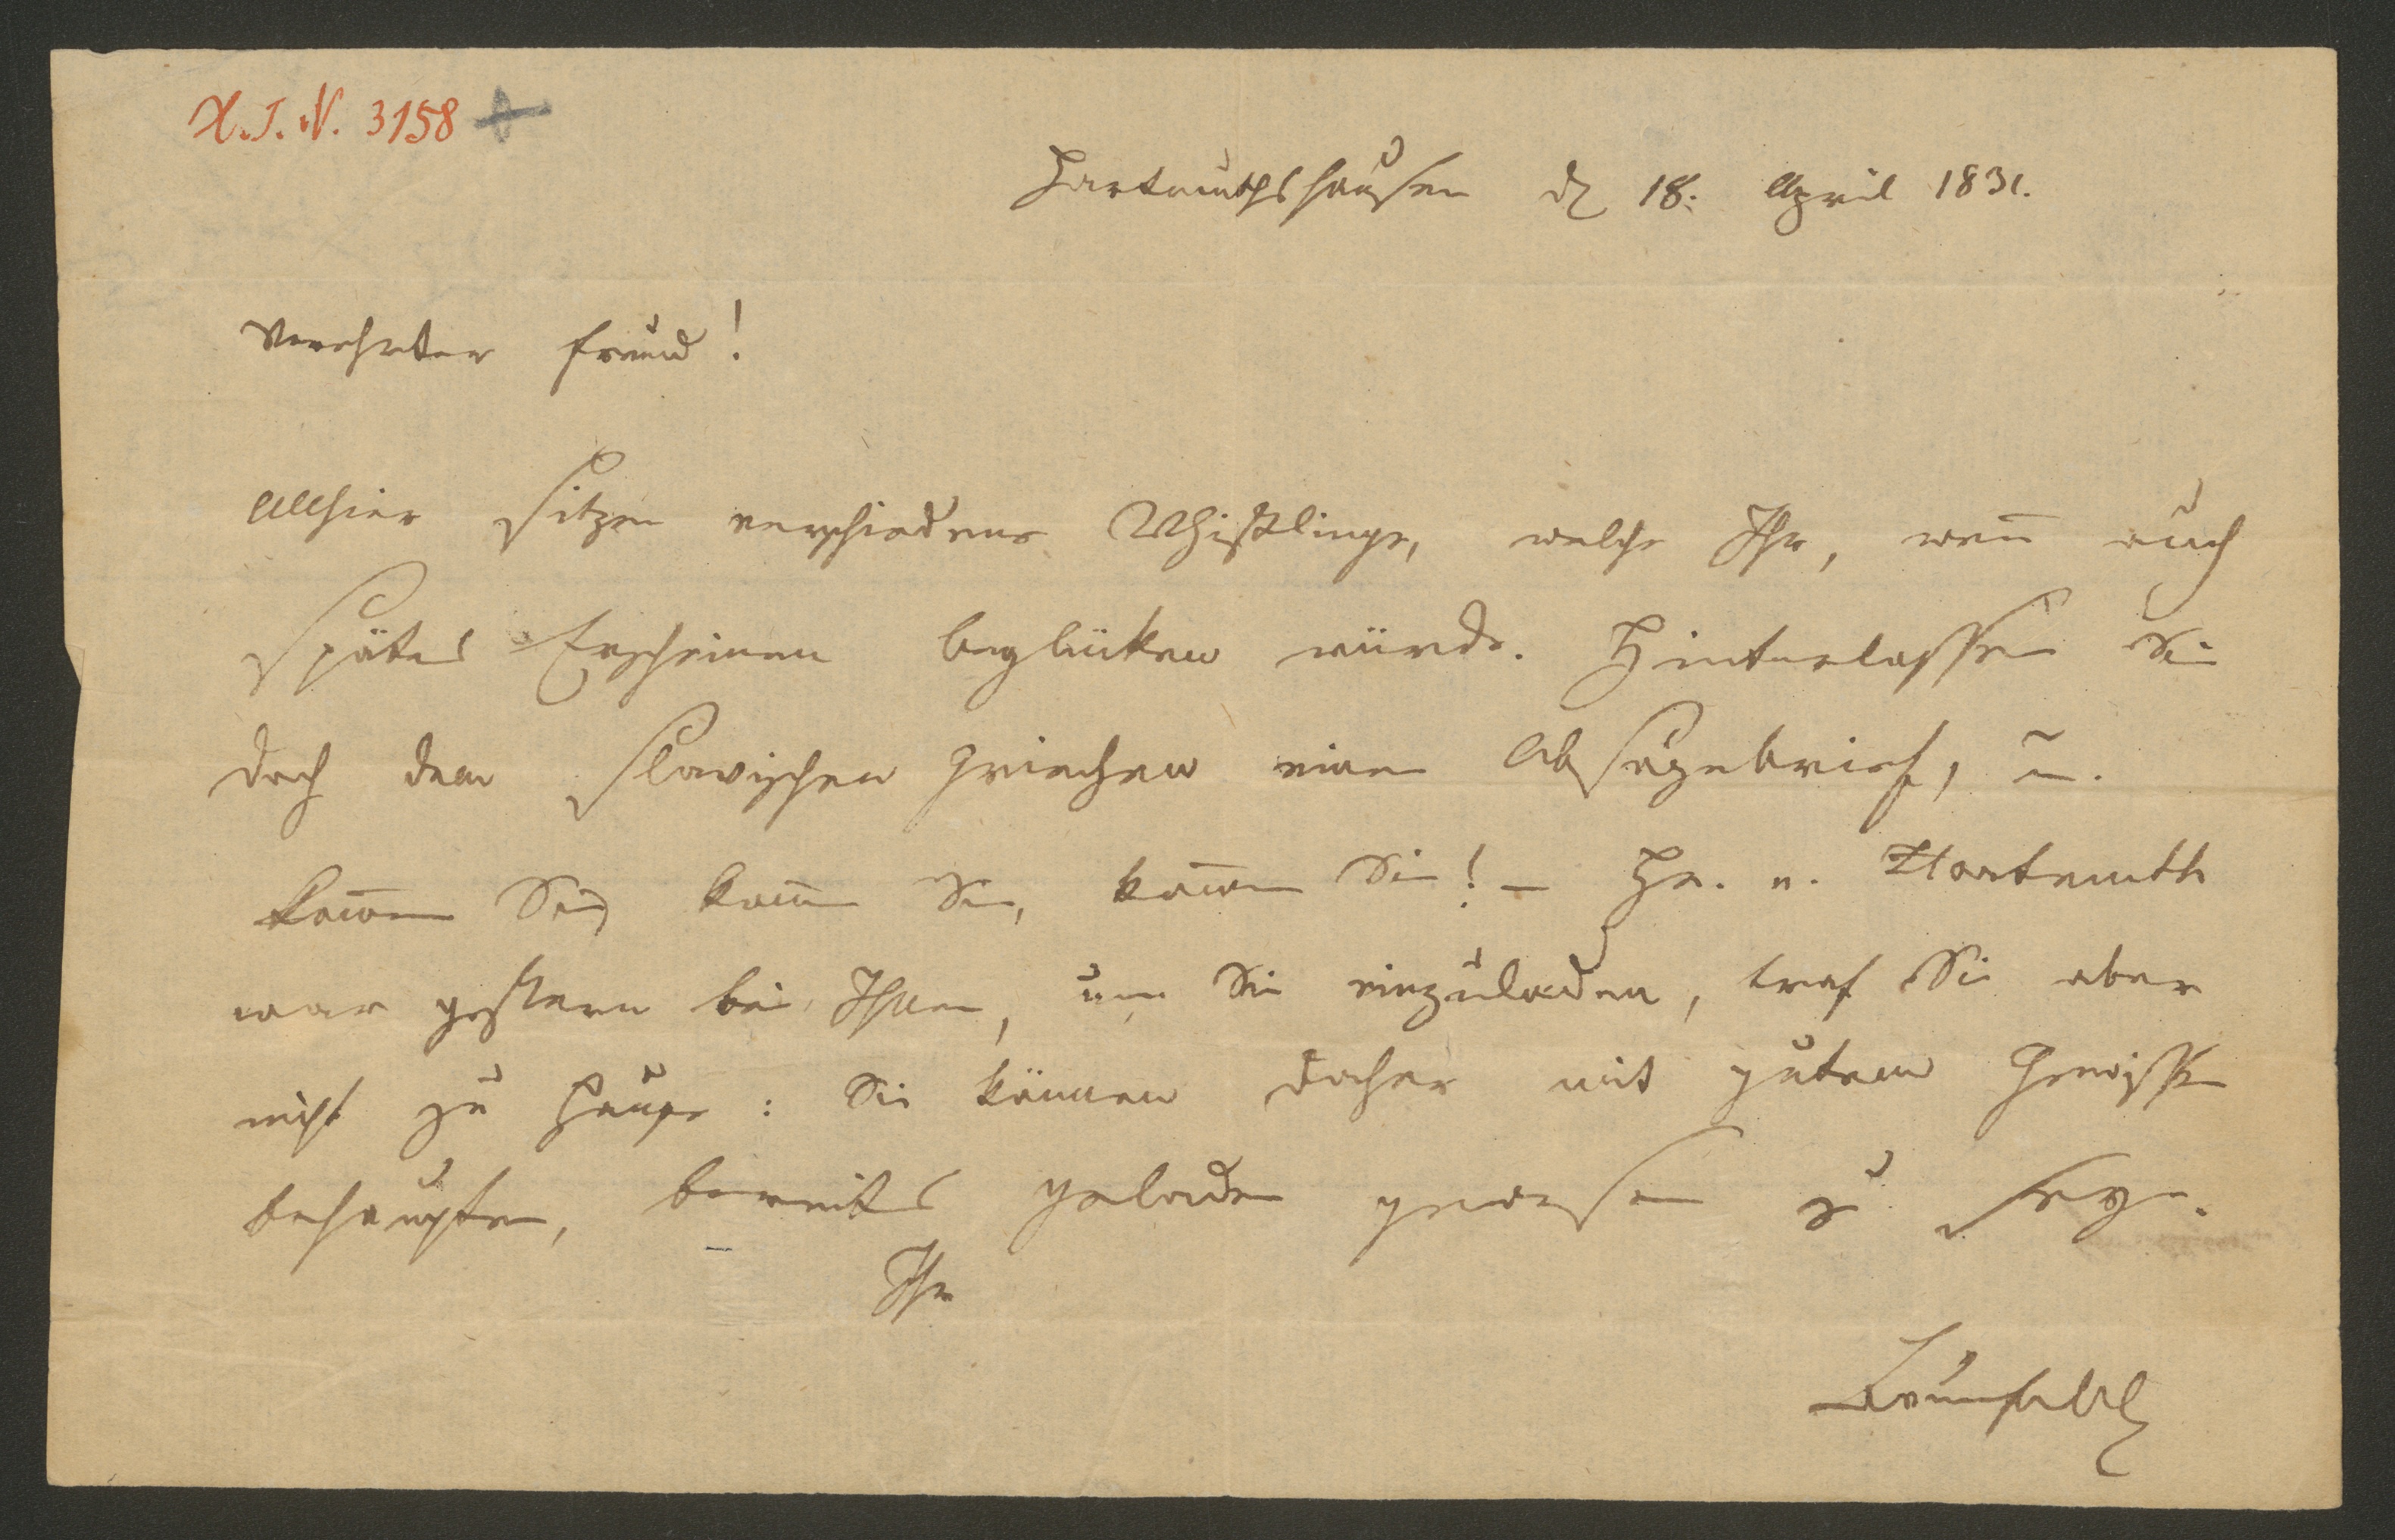 H.I.N. 3158
Hartmuthshausen d 18. April 1831.
Verehrter Freund!
Allhier sitzen verschiedene Whistlinge, welche Ihr, wen̄ auch
spätes Erscheinen beglücken würde. Hinterlassen Sie
doch dem slavischen Griechen einen Absagebrief, u.
kom̄en Sie, kom̄en Sie, kom̄en Sie! – Hr. v. Hartmuth
war gestern bei Ihnen, um Sie einzuladen, traf Sie aber
nicht zu Hause: Sie können daher mit gutem Gewissen
behaupten, bereits geladen gewesen zu seyn.
Ihr